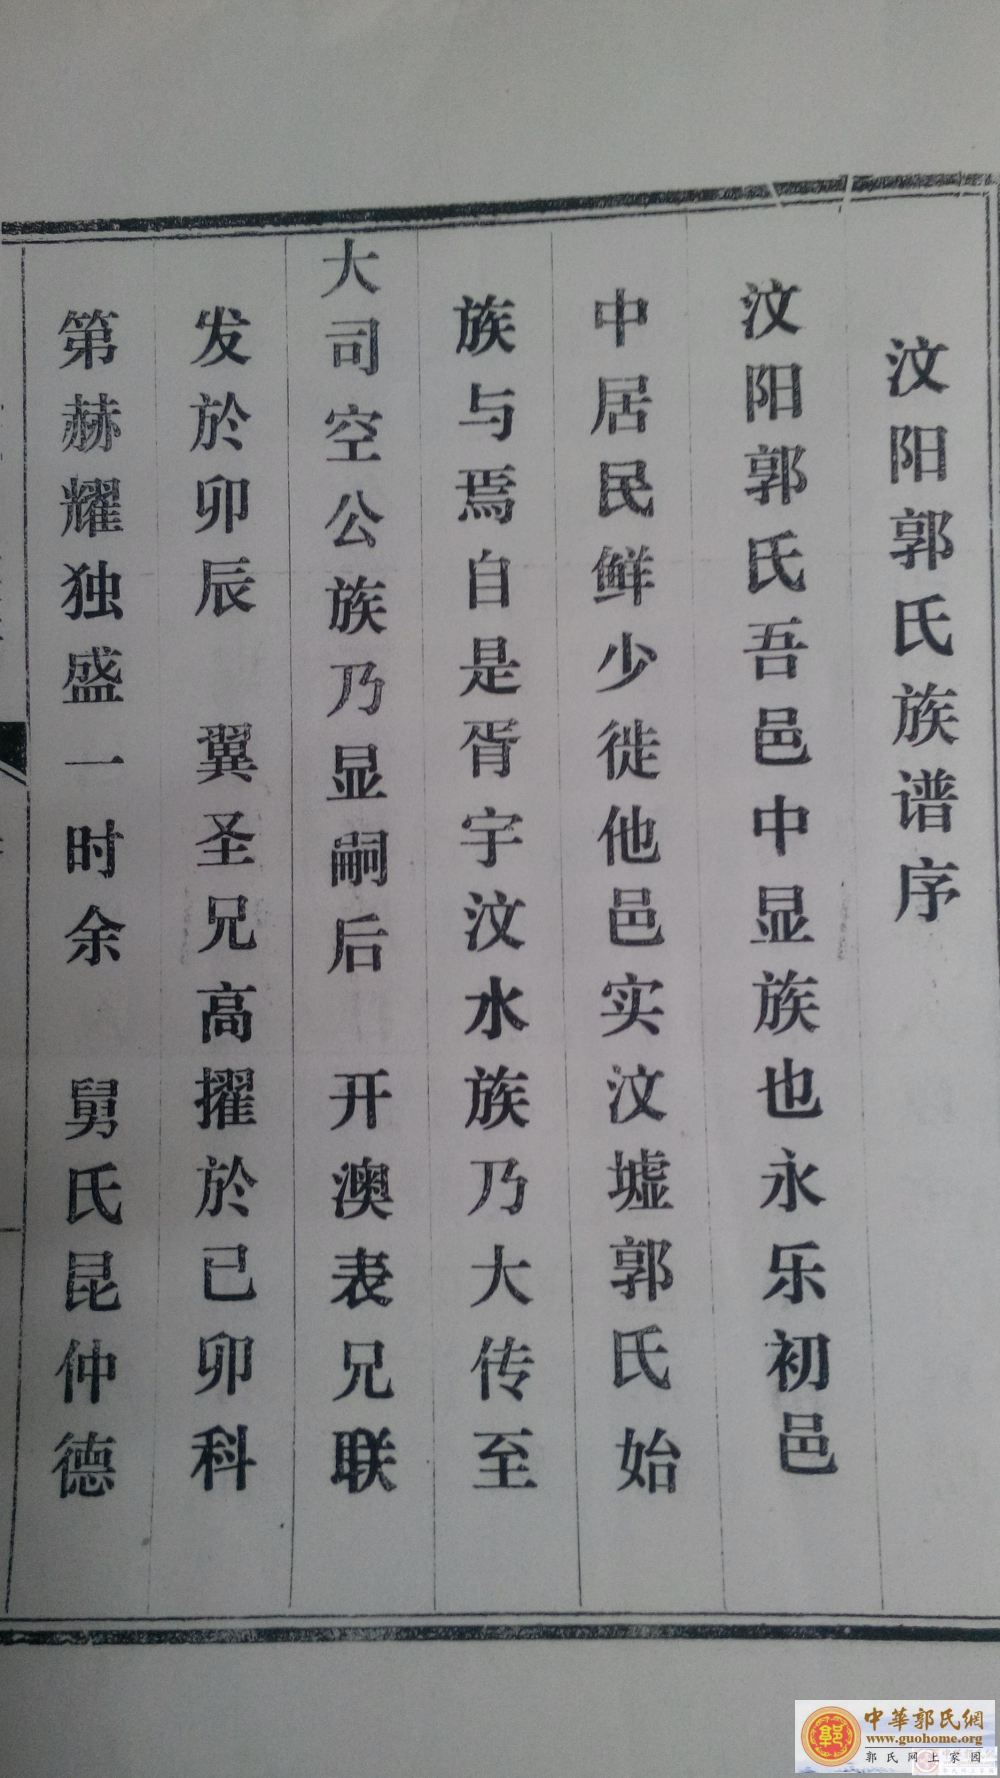 汶阳郭氏族谱序
汶阳郭氏吾邑中显族也永乐初邑
中居民鲜少徙他邑实汶墟郭氏始
族与焉自是胥宇汶水族乃大传至
大司空公族乃显嗣后 开澳表兄联
发於卯辰 翼圣兄高擢於己卯科
第赫耀独盛一时余 舅氏昆仲德
中華郭氏網
www.guohome.org
郭氏网上家园